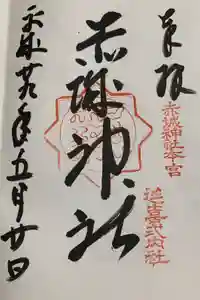 奉拝
赤城神社本宮
延喜式内社
赤城神社
平成廿九年五月廿日